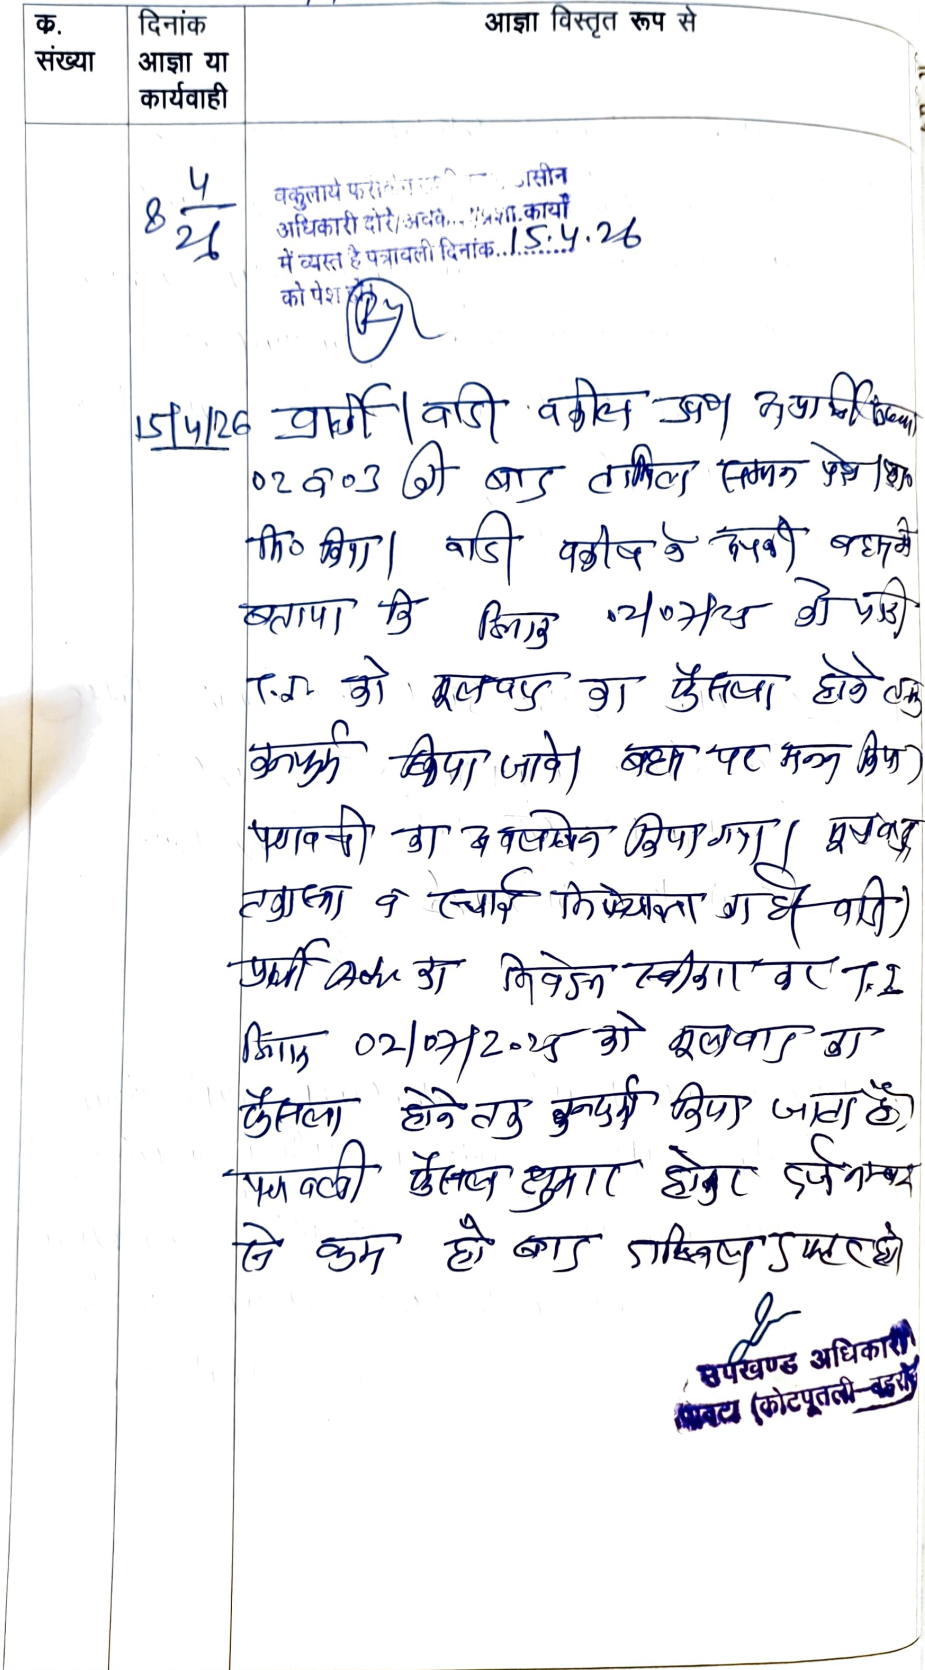 क. संख्या
दिनांक आज्ञा या कार्यवाही
आज्ञा विस्तृत रूप से
8 4/26
वकुलाये
अधिकारी दौरे/ कार्यो
में व्यस्त है पत्रावली दिनांक 15.4.26
को पेश हो।
15/4/26 प्रार्थी / वादी वकील उप०
02 व 03 की बाद तामिल सम्मन पेश
किया। वादी वकील ने बहस में
बताया कि दिनांक को
T.I. को मूलवाद का फैसला होने तक
कनफर्म किया जावे। बहस पर मनन किया
पत्रावली का अवलोकन किया गया। मूलवाद
तकास्मा व स्थाई निषेधाज्ञा का है। वादी
प्रार्थी का निवेदन स्वीकार कर T.I
दिनांक 02/07/2025 को मूलवाद का
फैसला होने तक कनफर्म किया जाता है।
पत्रावली फैसल शुमार होकर दर्ज नम्बर
से कम हो बाद दाखिल दफ्तर हो
उपखण्ड अधिकारी
पावटा (कोटपूतली-बहरोड़)